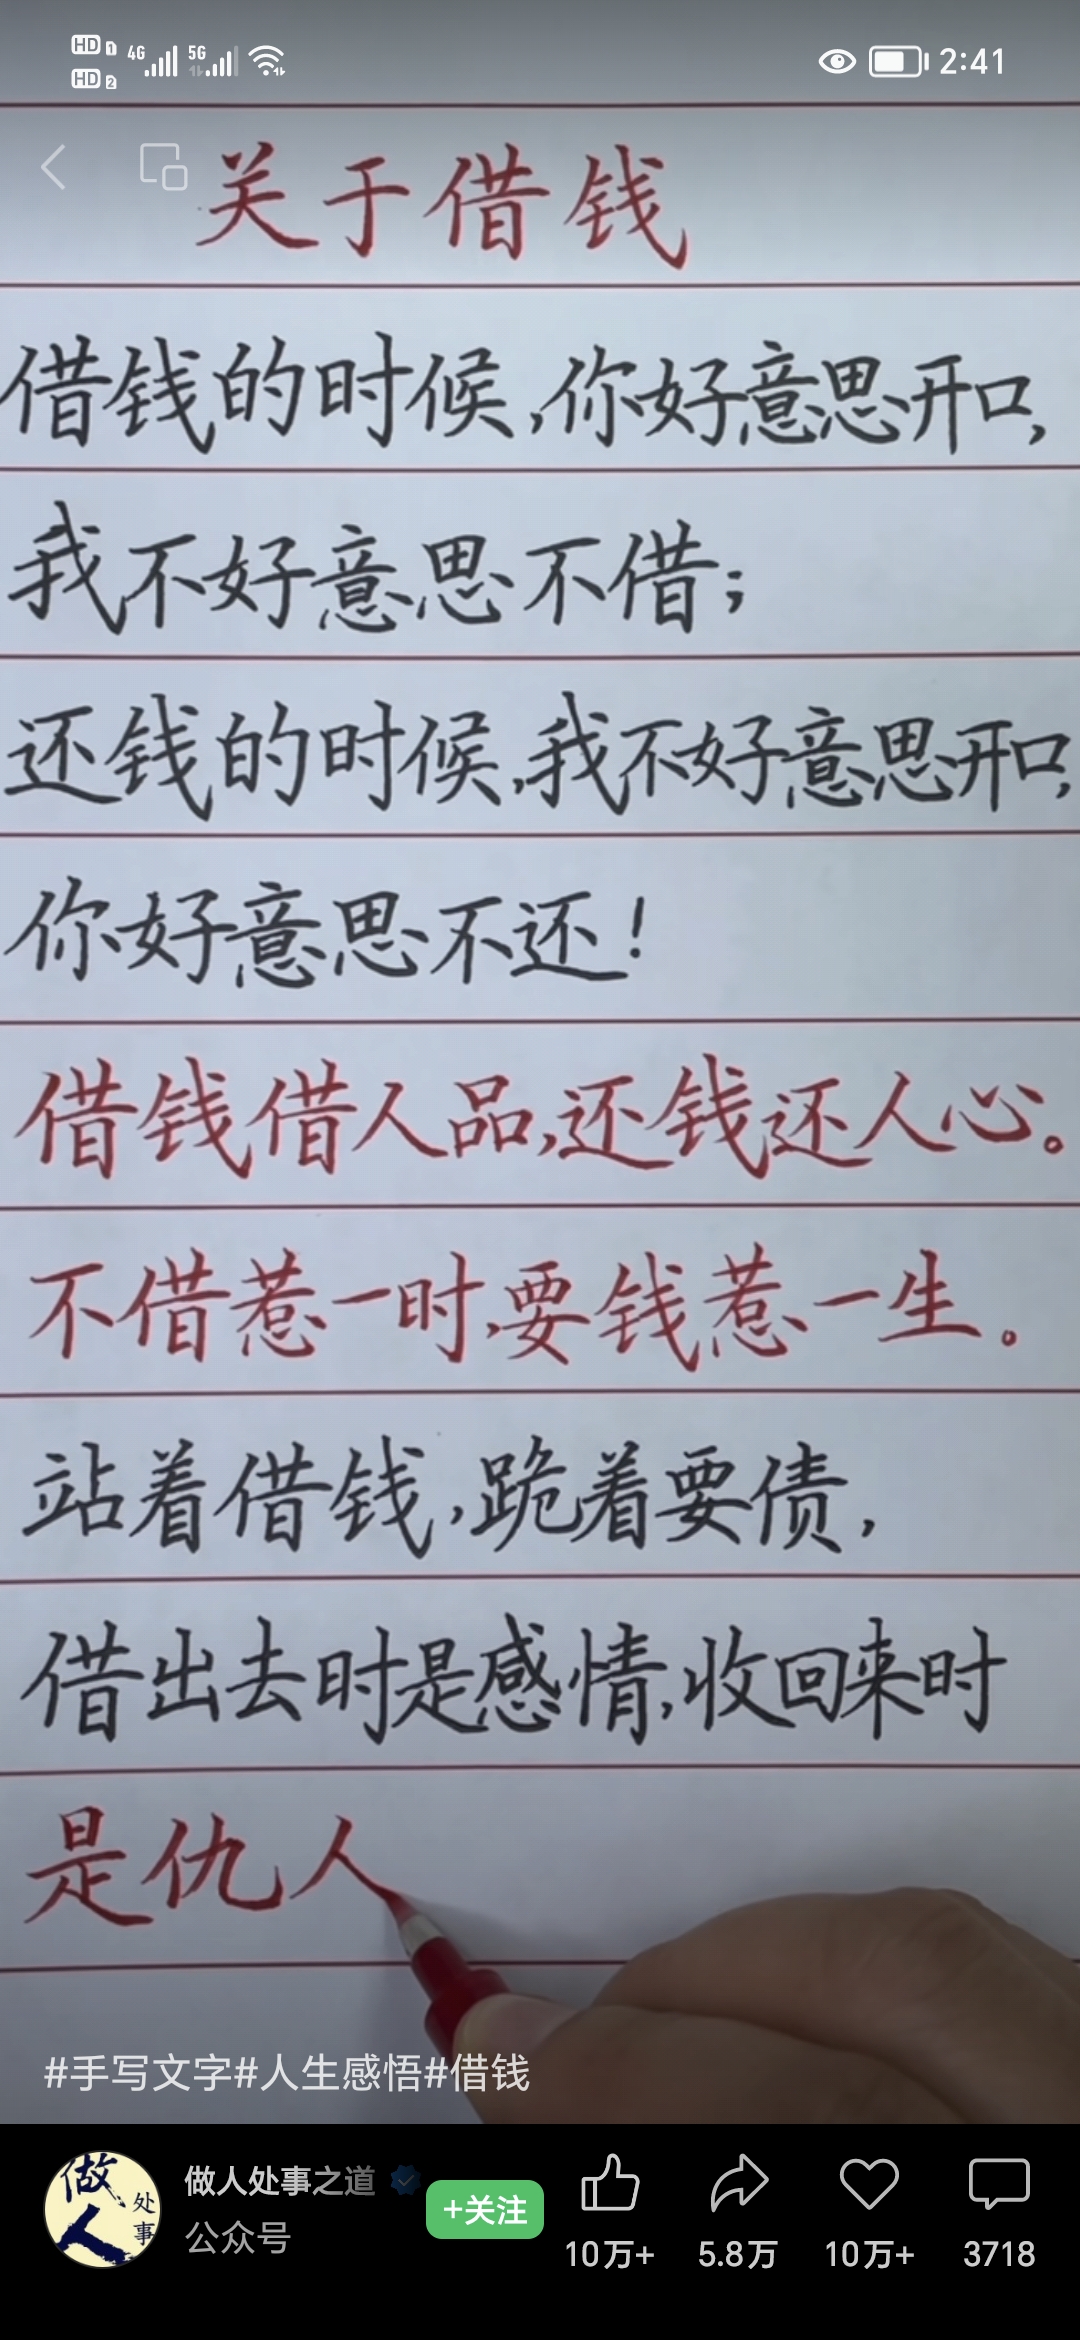 HD 1 4G 5G
HD 2
2:41
关于借钱
借钱的时候,你好意思开口,
我不好意思不借;
还钱的时候,我不好意思开口,
你好意思不还!
借钱借人品,还钱还人心。
不借惹一时,要钱惹一生。
站着借钱,跪着要债,
借出去时是感情,收回来时
是仇人
#手写文字#人生感悟#借钱
做人处事
做人处事之道
公众号
+关注
10万+ 5.8万 10万+ 3718